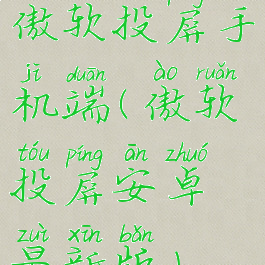 傲软投屏手
jī duān ào ruǎn
机端(傲软
tóu píng ān zhuó
投屏安卓
zuì xīn bǎn
最新版)